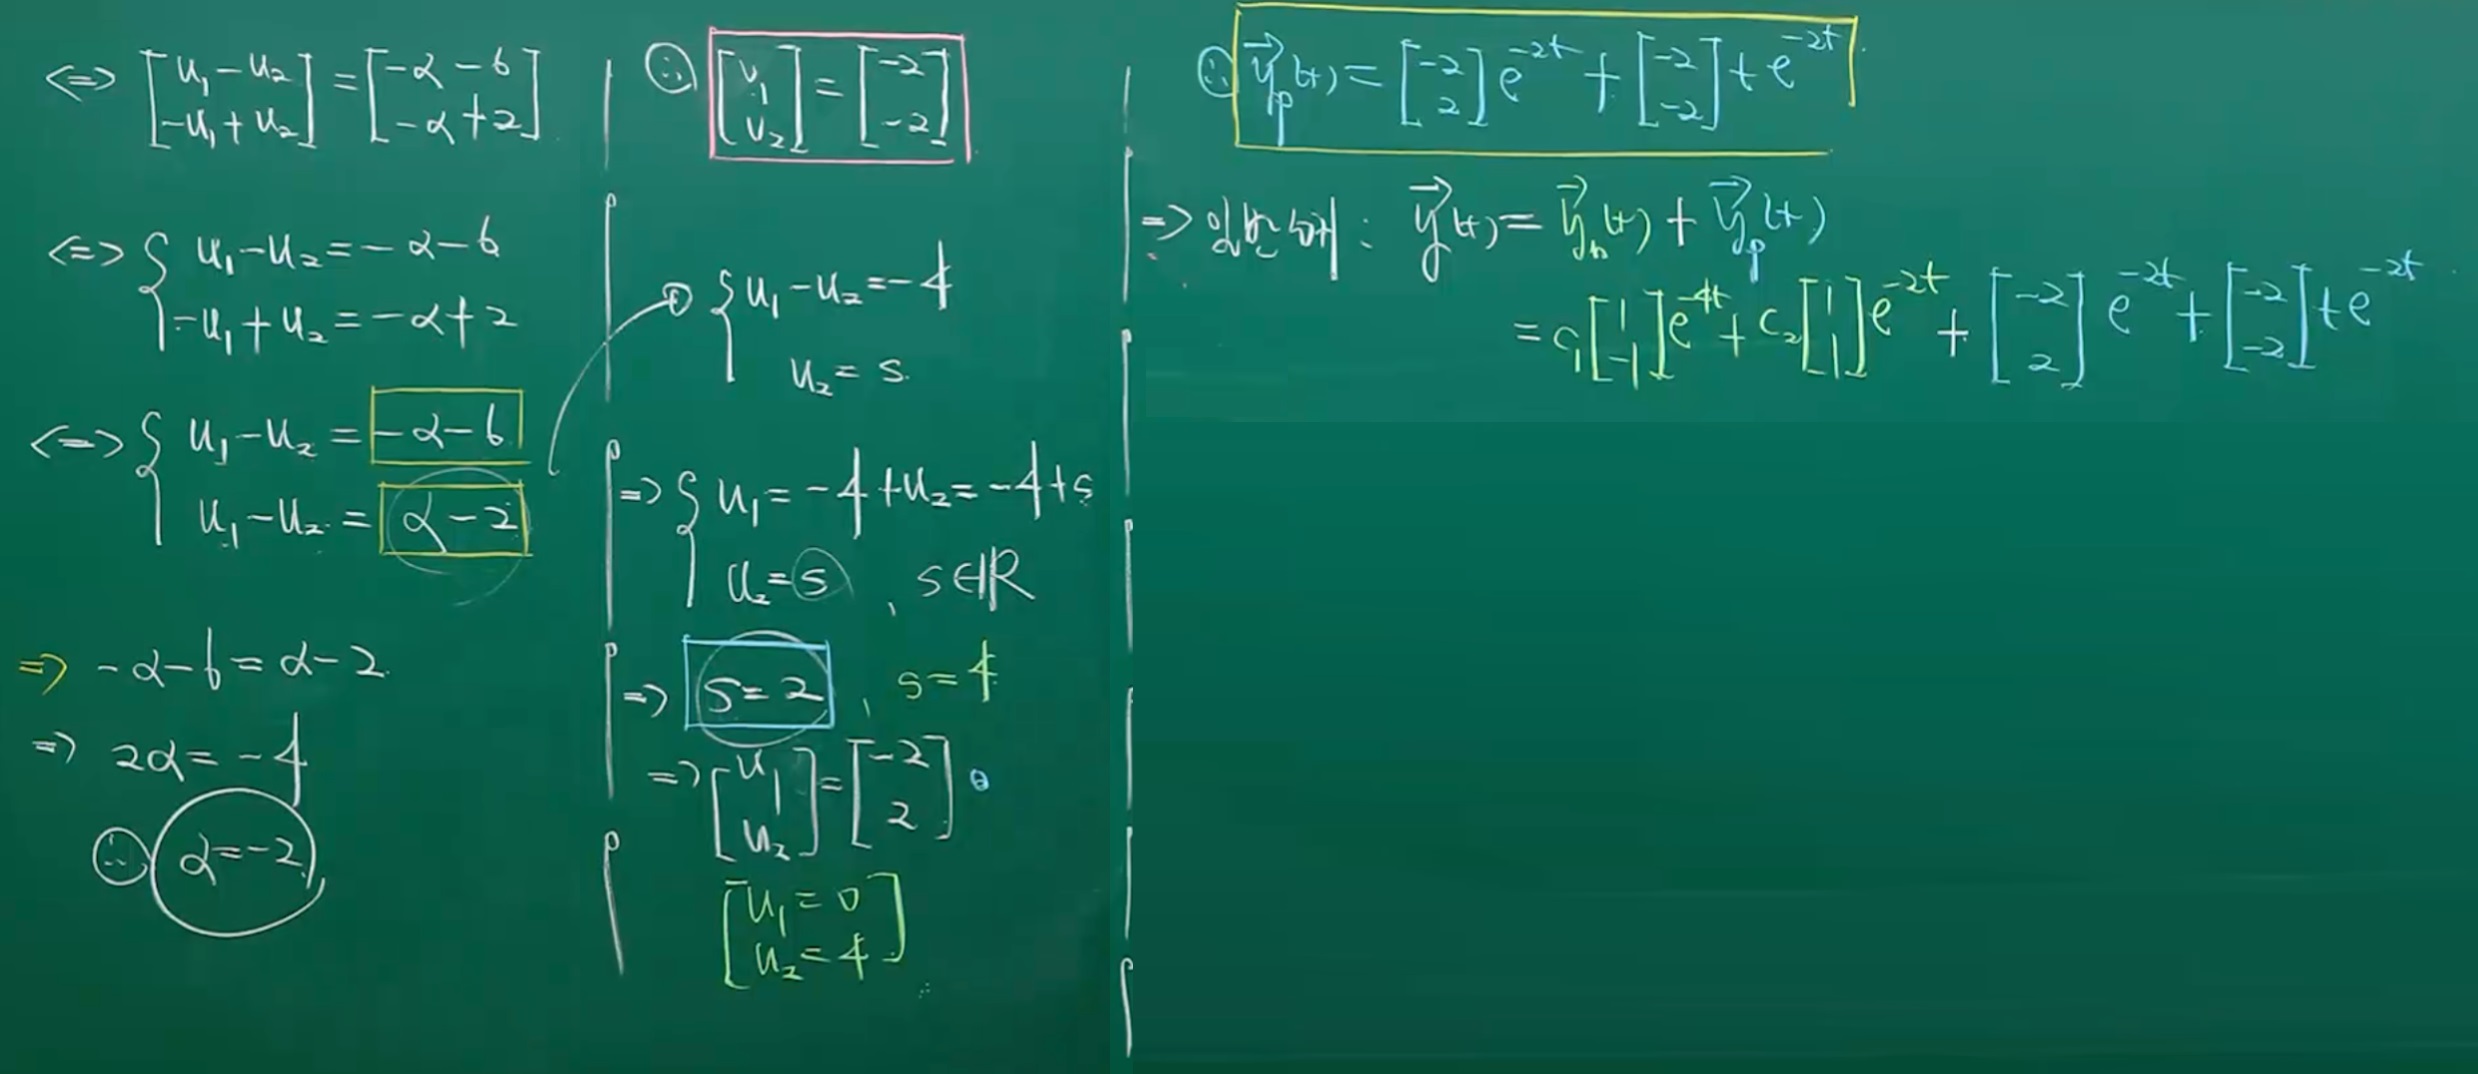 <=> [u₁-u₂ / -u₁+u₂] = [-α-6 / -α+2]
<=> { u₁-u₂ = -α-6
-u₁+u₂ = -α+2
<=> { u₁-u₂ = -α-6
u₁-u₂ = α-2
=> -α-6 = α-2
=> 2α = -4
∴ α=-2
∴ [v₁ / v₂] = [-2 / -2]
{ u₁-u₂ = -4
u₂ = s.
=> { u₁ = -4+u₂ = -4+s
u₂ = s, s∈ℝ
=> s=2, s=4
=> [u₁ / u₂] = [-2 / 2]
[u₁=0 / u₂=4]
∴ y⃗p(t) = [-2 / 2]e^{-2t} + [-2 / -2]te^{-2t}
=> 일반해 : y⃗(t) = y⃗h(t) + y⃗p(t)
= c₁[1 / -1]e^{-4t} + c₂[1 / 1]e^{-2t} + [-2 / 2]e^{-2t} + [-2 / -2]te^{-2t}